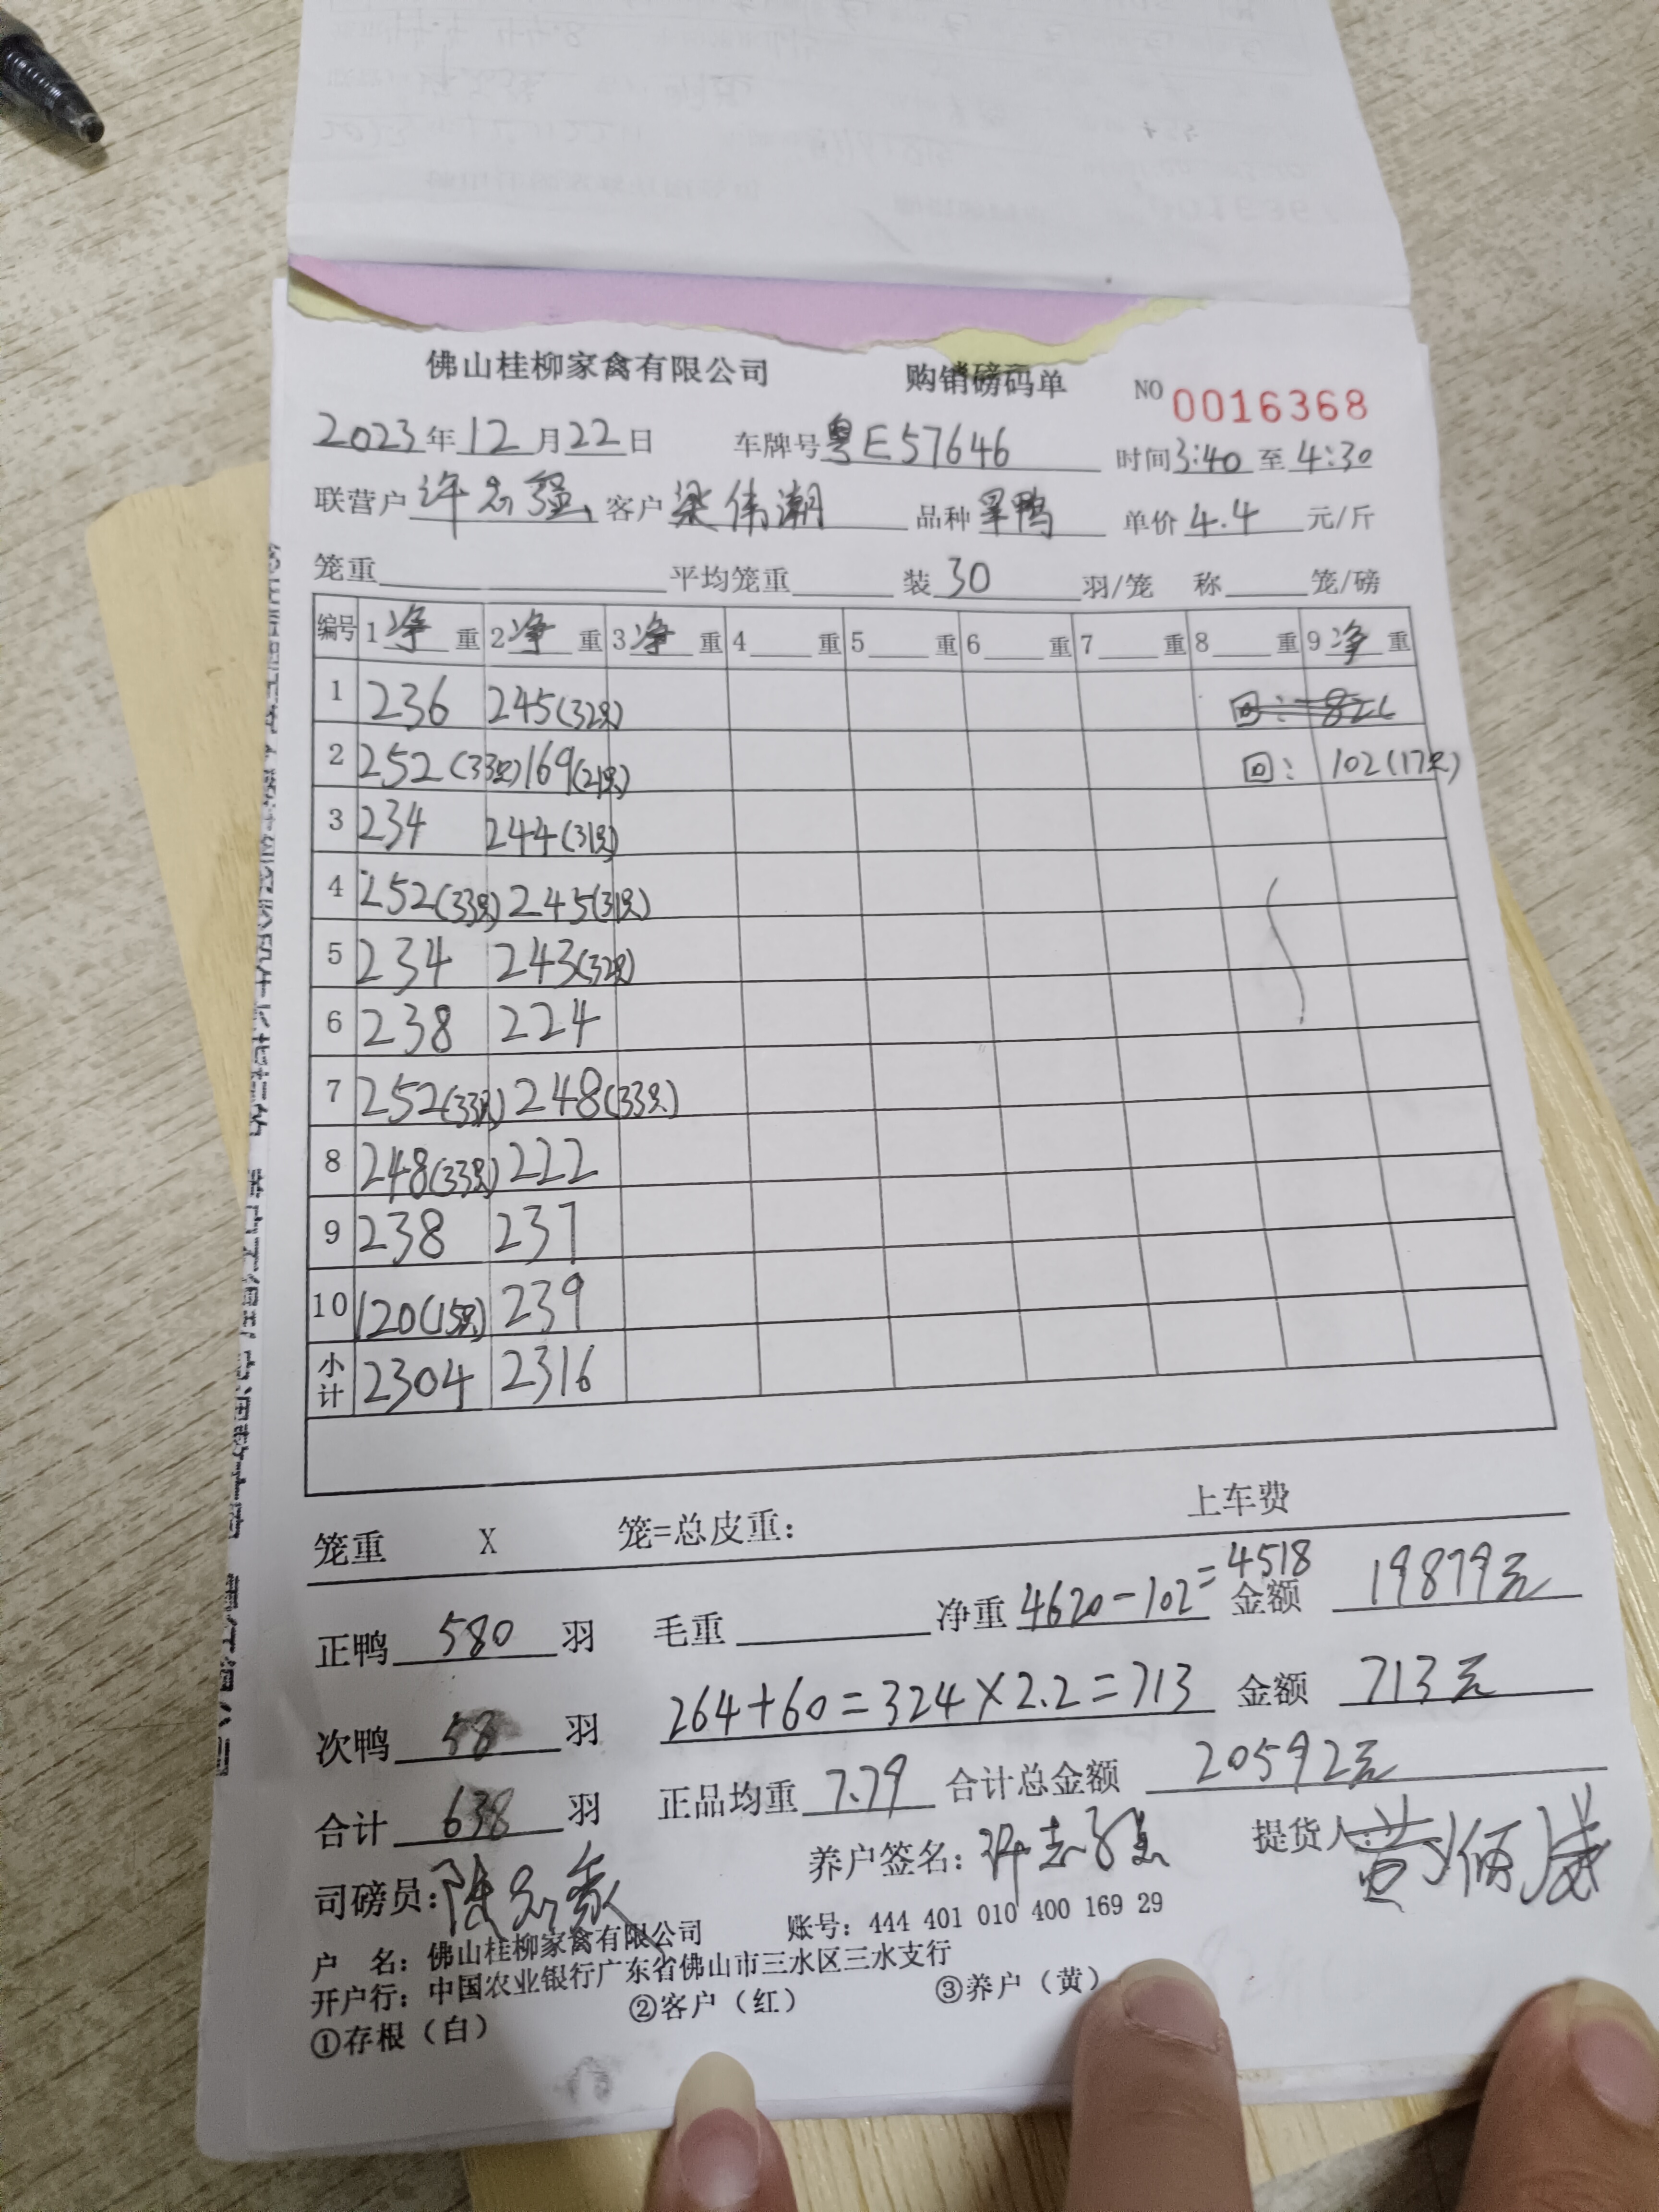 佛山桂柳家禽有限公司 购销磅码单 NO 0016368
2023年12月22日 车牌号粤E57646 时间3:40至4:30
联营户许志强 客户梁伟潮 品种旱鸭 单价4.4元/斤
笼重 平均笼重 装30羽/笼 称 笼/磅
编号 1净重 2净重 3净重 4重 5重 6重 7重 8重 9净重
1 236 245(32只)
2 252(33只) 169(21只) 回: 102(17只)
3 234 244(31只)
4 252(33只) 245(31只)
5 234 243(32只)
6 238 224
7 252(33只) 248(33只)
8 248(33只) 222
9 238 237
10 120(15只) 239
小计 2304 2316
上车费
笼重 X 笼=总皮重:
正鸭 580 羽 毛重 净重 4620-102=4518 金额 19879元
次鸭 58 羽 264+60=324×2.2=713 金额 713元
合计 638 羽 正品均重 7.79 合计总金额 20592元
司磅员: 养户签名:许志强 提货人:
户 名: 佛山桂柳家禽有限公司 账号: 444 401 010 400 169 29
开户行: 中国农业银行广东省佛山市三水区三水支行
①存根(白) ②客户(红) ③养户(黄)